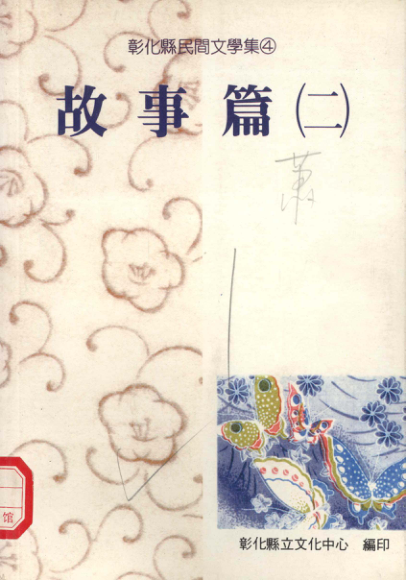 彰化縣民間文學集④
故事篇㈡
蕭
館
彰化縣立文化中心 編印